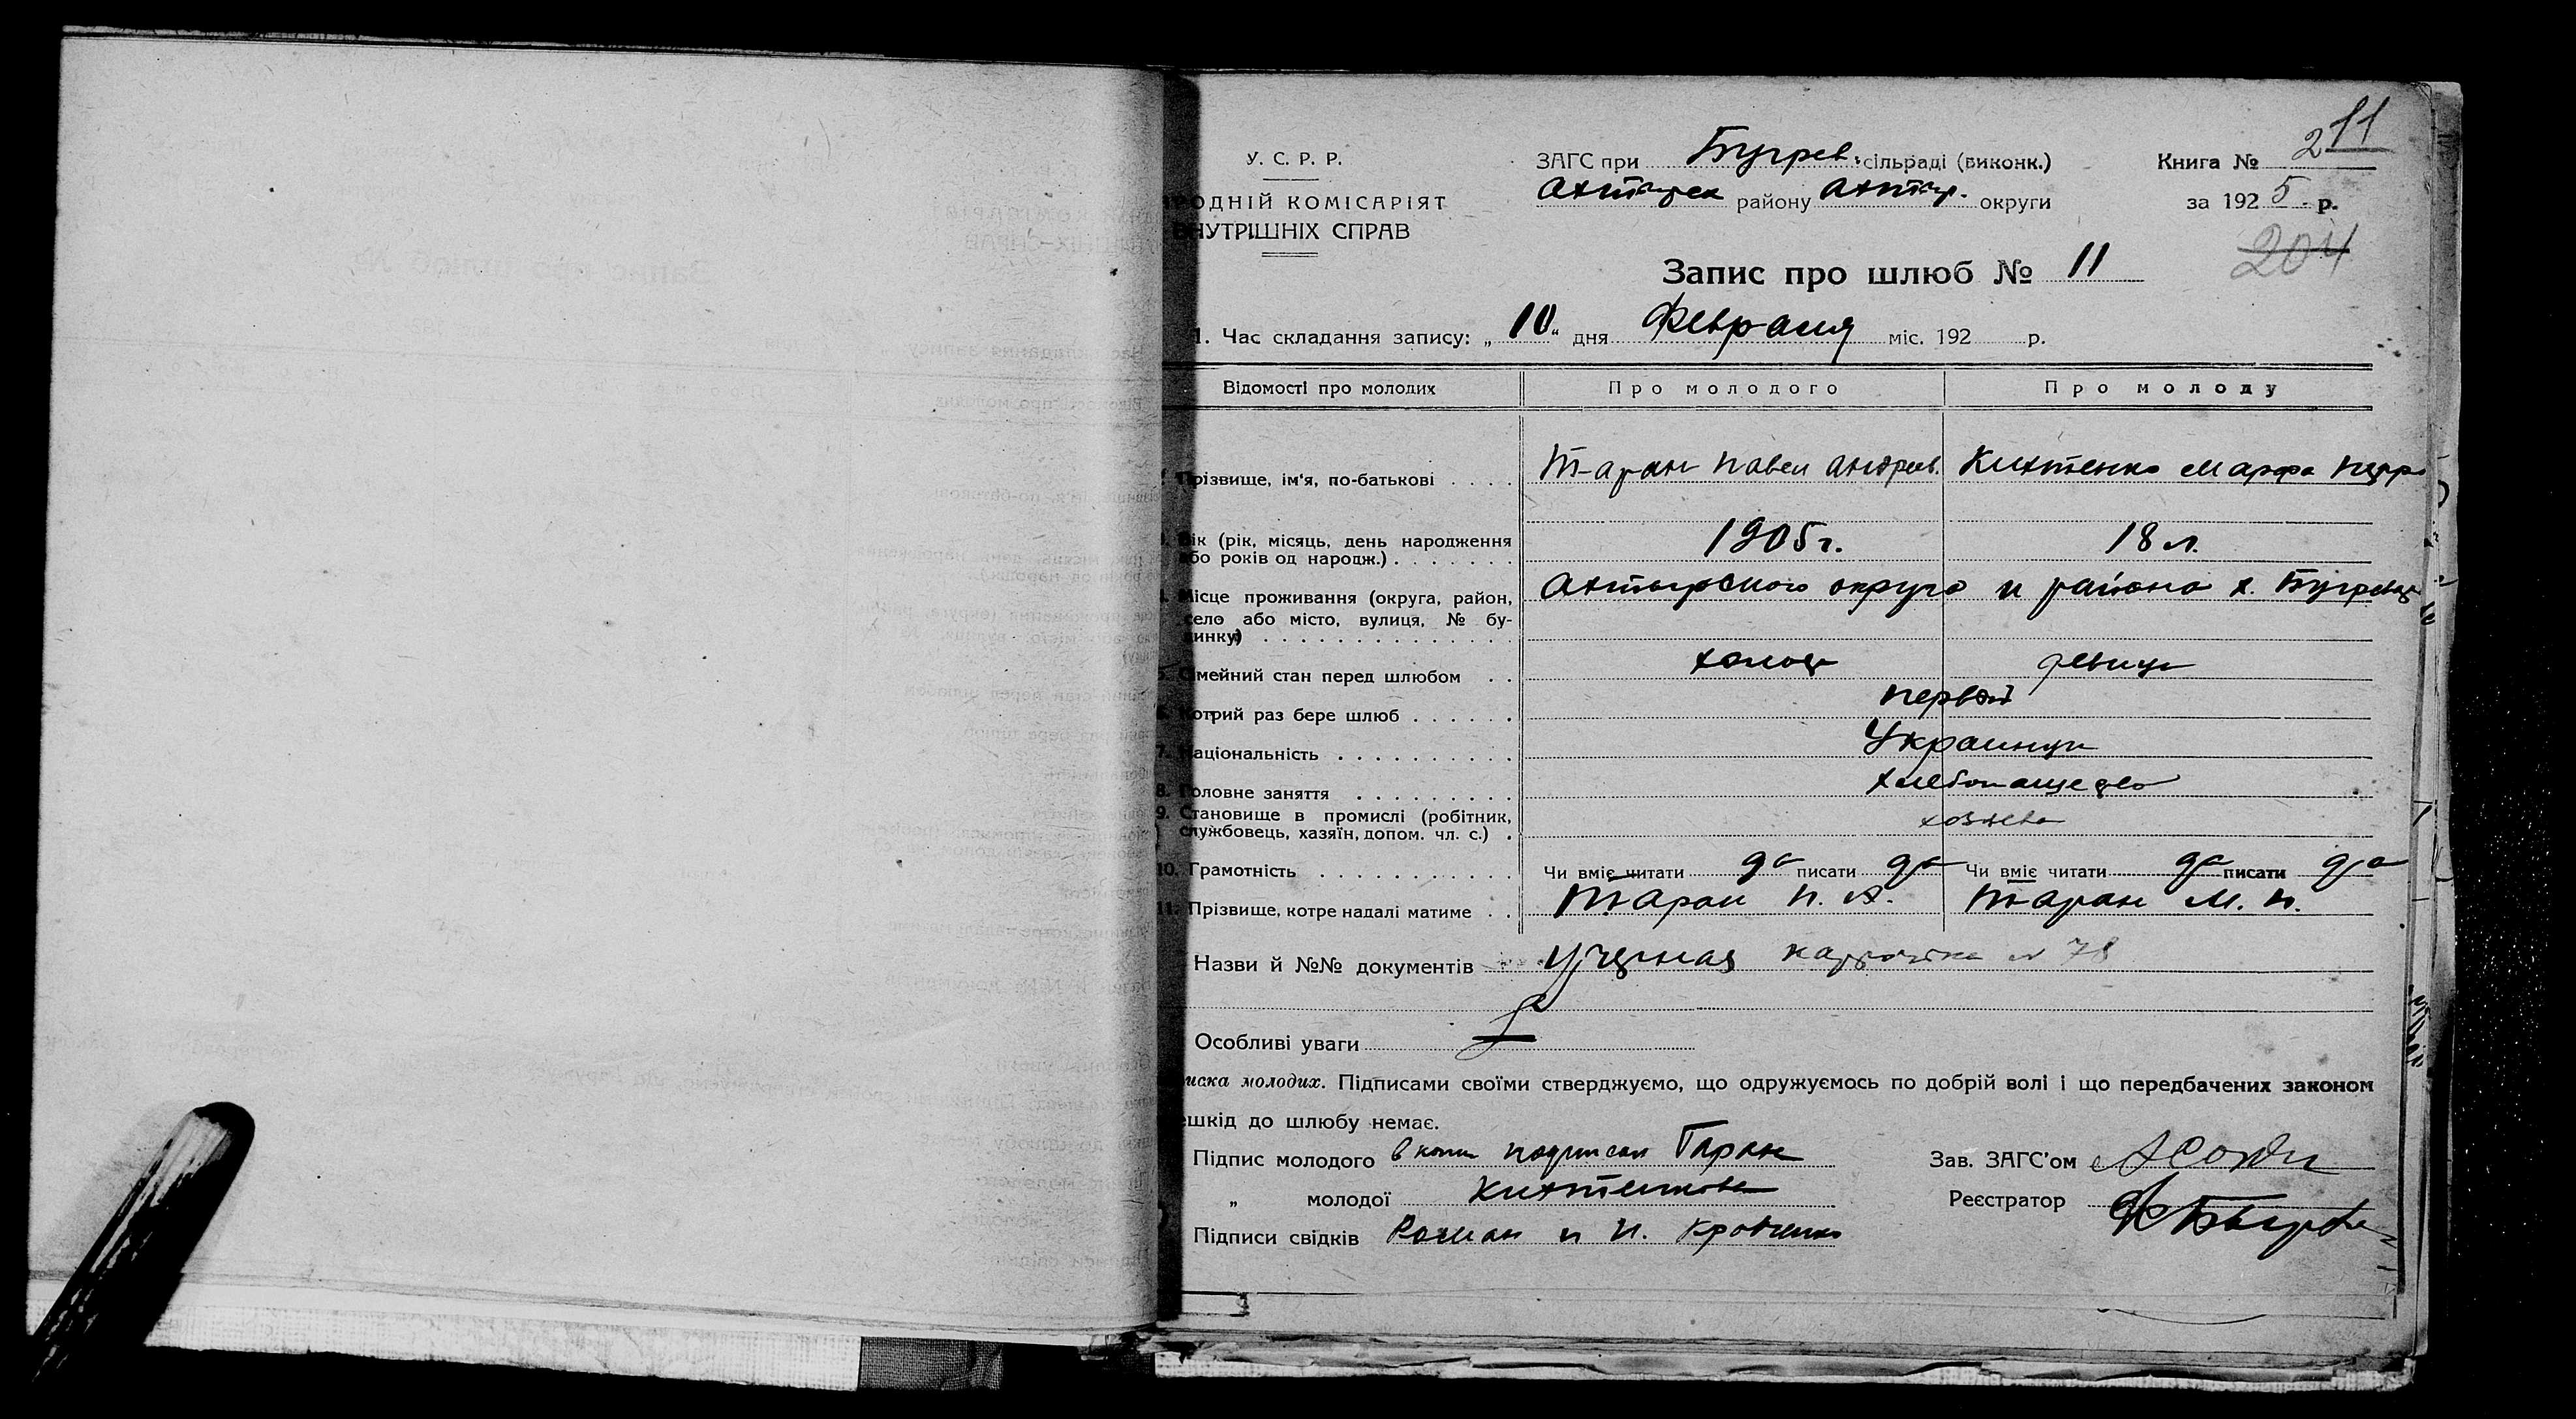 211
У. С. Р. Р.
ЗАГС при Бугрев. сільраді (виконк.)
Книга № 2
РОДНІЙ КОМІСАРІЯТ
Ахтырск району Ахтыр. округи
за 1925 р.
ВНУТРІШНІХ СПРАВ
204
Запис про шлюб № 11
1. Час складання запису: „10“ дня Февраля міс. 192 р.
Відомості про молодих
Про молодого
Про молоду
Прізвище, ім'я, по-батькові
Таран Павел Андреев.
Кихтенко Марфа
3. Вік (рік, місяць, день народження або років од народж.)
1905 г.
18 л.
4. Місце проживання (округа, район, село або місто, вулиця, № будинку)
Ахтырского округа и района х.
5. Сімейний стан перед шлюбом
холост
девица
6. Котрий раз бере шлюб
первый
7. Національність
Украинцы
8. Головне заняття
9. Становище в промислі (робітник, службовець, хазяїн, допом. чл. с.)
хозяева
10. Грамотність
Чи вміє читати да писати да
Чи вміє читати да писати да
11. Прізвище, котре надалі матиме
Таран П. А.
Таран М. П.
Назви й №№ документів
карточка № 78
Особливі уваги
иска молодих. Підписами своїми стверджуємо, що одружуємось по добрій волі і що передбачених законом
ешкід до шлюбу немає.
Підпис молодого подписал Таран
Зав. ЗАГС'ом
„ молодої
Реєстратор
Підписи свідків Роман и И. Кравченко